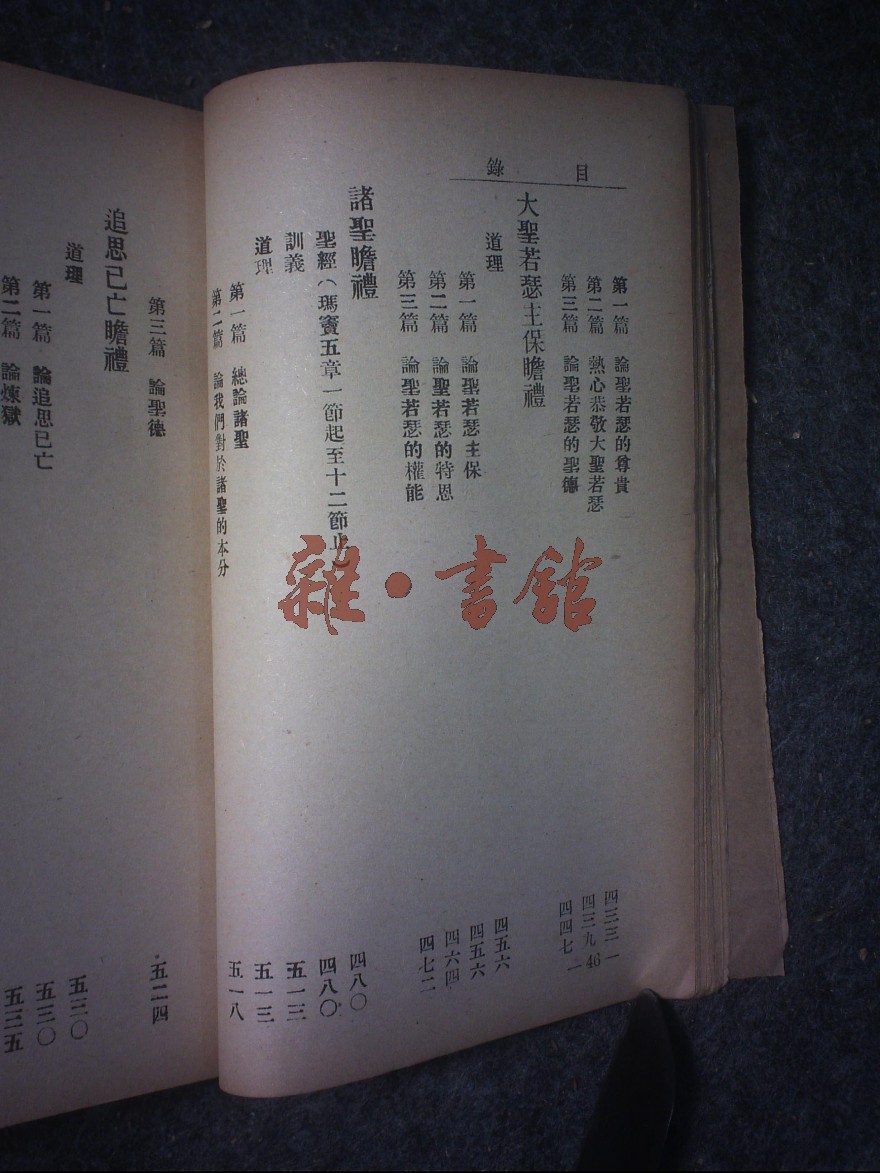 目錄
第一篇 論聖若瑟的尊貴
第二篇 熱心恭敬大聖若瑟 四三九
第三篇 論聖若瑟的聖德 四四七
46
大聖若瑟主保瞻禮
道理 四五六
第一篇 論聖若瑟主保 四五六
第二篇 論聖若瑟的特恩 四六四
第三篇 論聖若瑟的權能 四七二
諸聖瞻禮 四八〇
聖經(瑪竇五章一節起至十二節止) 四八〇
訓義 五一三
道理 五一三
第一篇 總論諸聖 五一八
第二篇 論我們對於諸聖的本分
第三篇 論聖德 五二四
追思已亡瞻禮
道理 五三〇
第一篇 論追思已亡 五三〇
第二篇 論煉獄 五三五
雜·書館